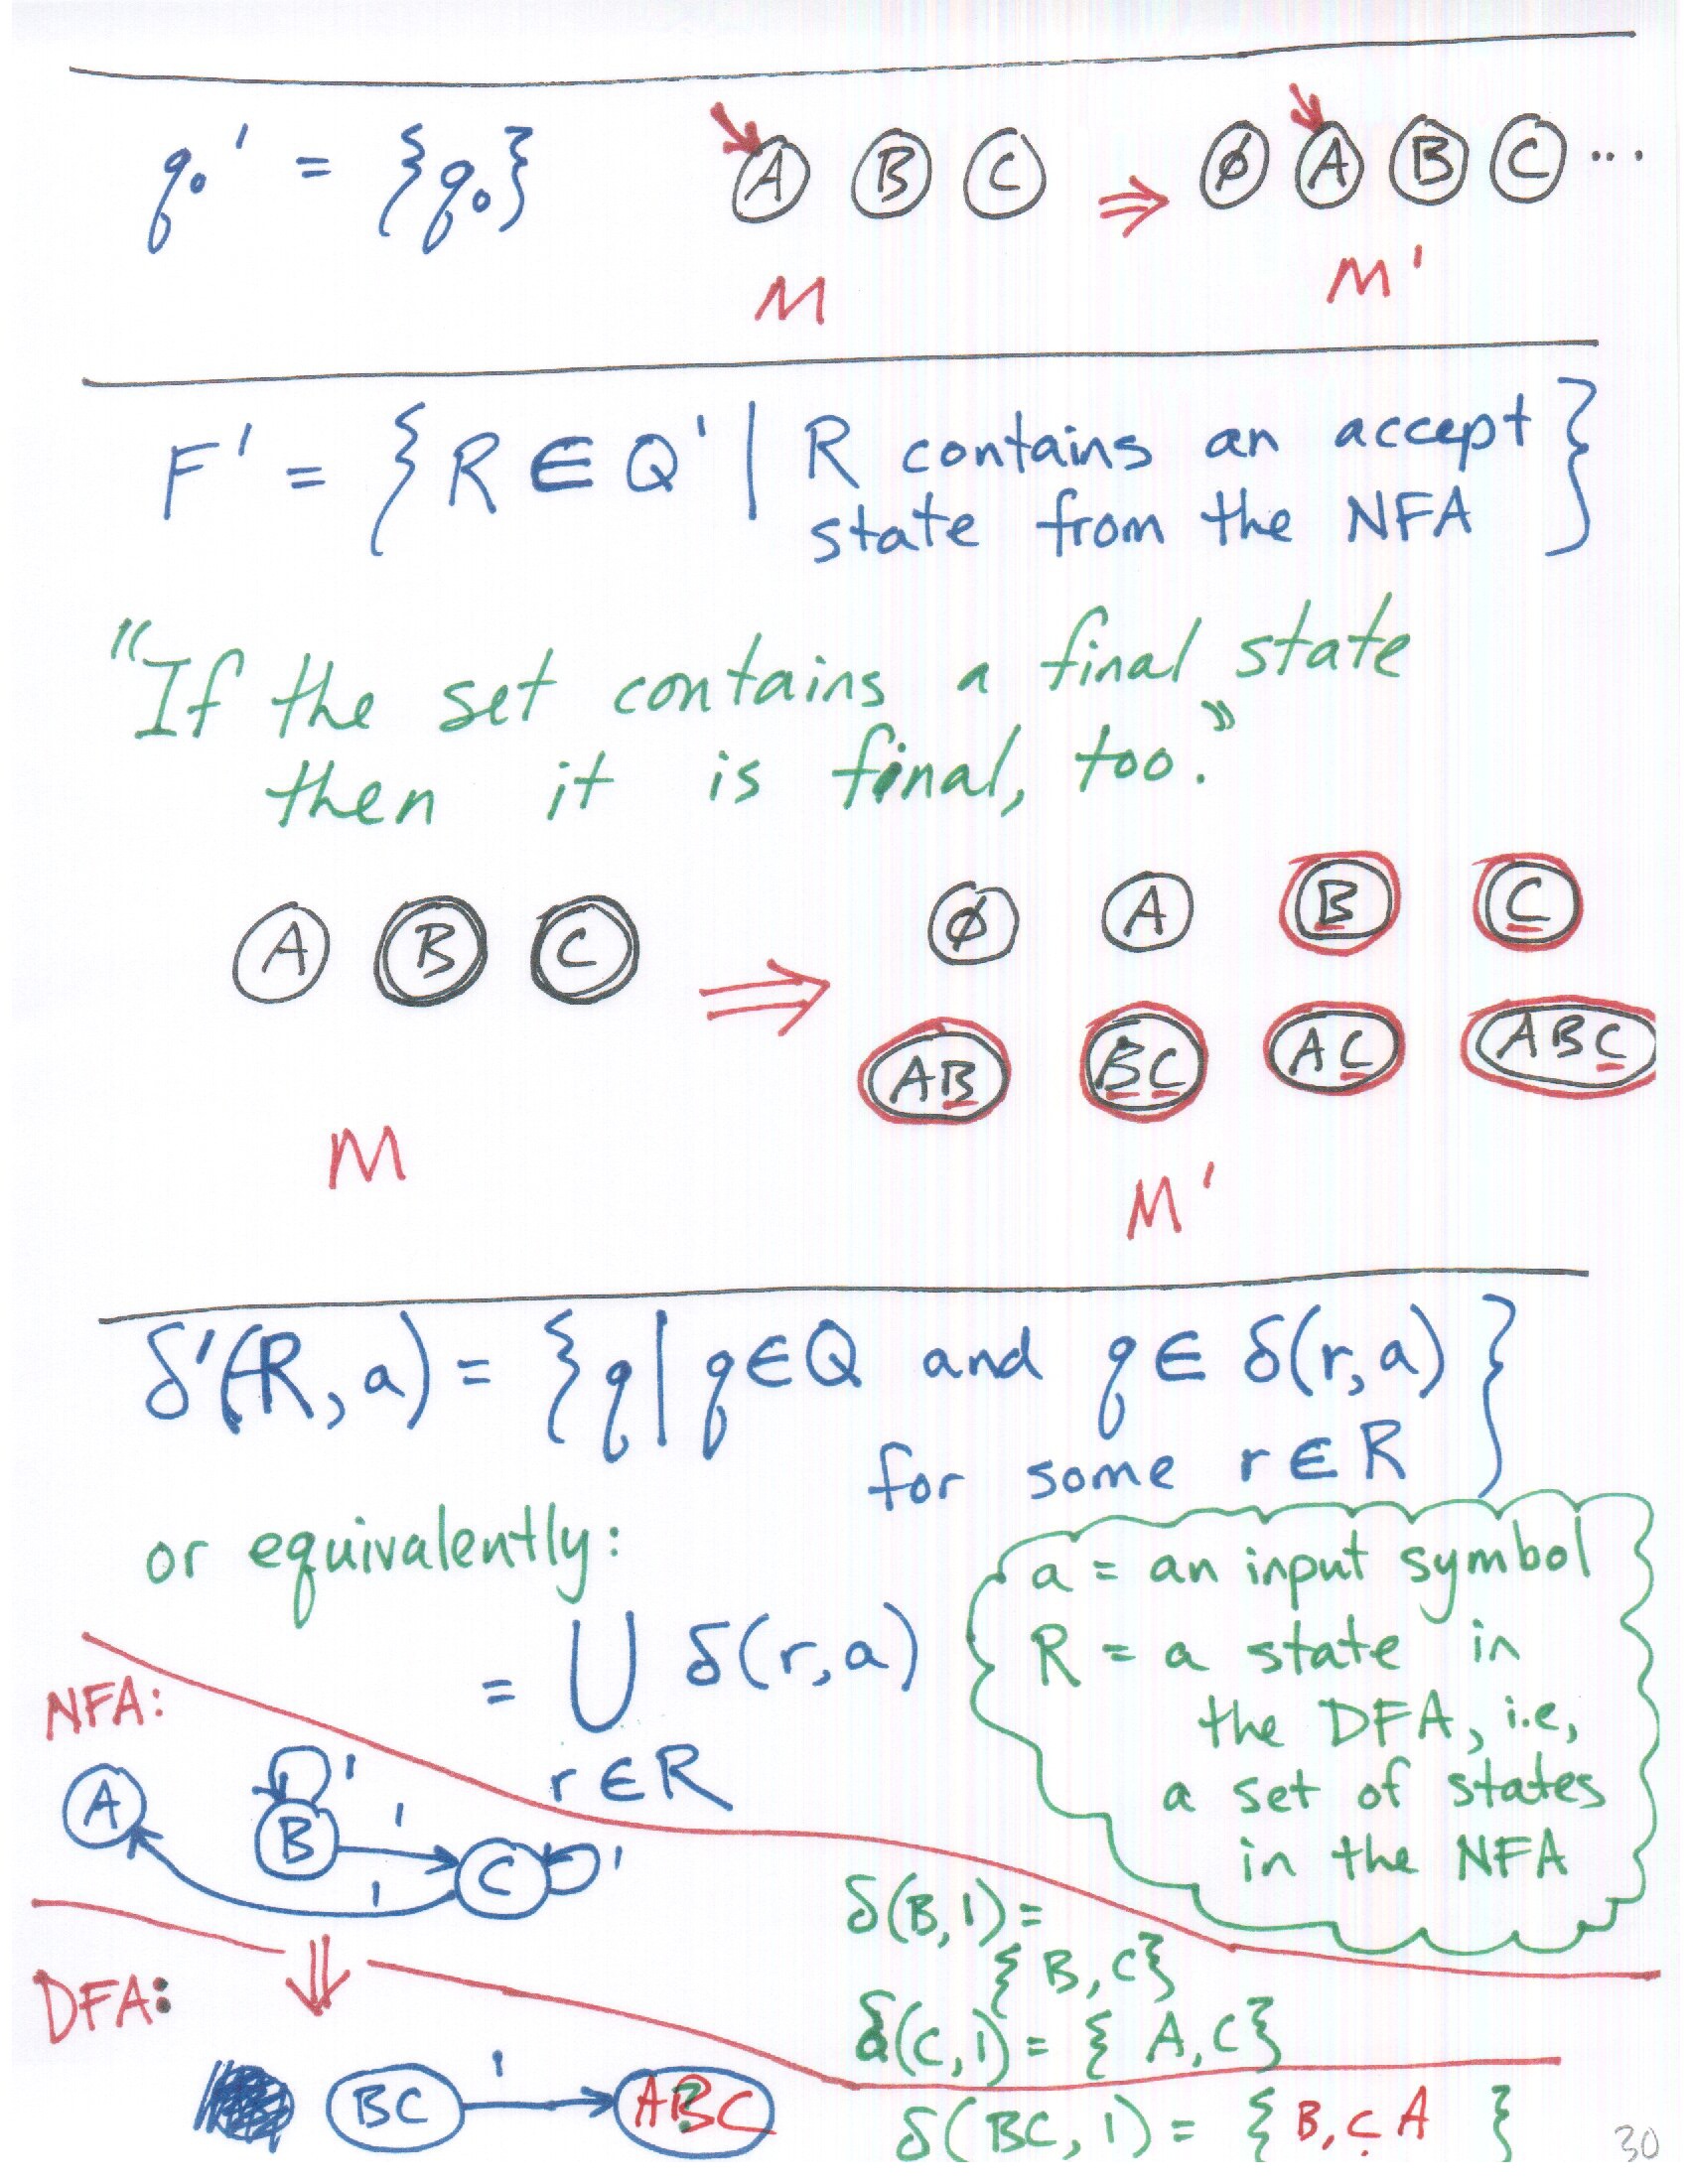 q₀' = {q₀}
A B C ⇒ ∅ A B C ...
M M'
F' = { R ∈ Q' | R contains an accept
state from the NFA }
"If the set contains a final state
then it is final, too."
∅ A B C
A B C ⇒
AB BC AC ABC
M
M'
δ'(R, a) = { q | q ∈ Q and q ∈ δ(r, a)
for some r ∈ R }
or equivalently:
= ⋃ δ(r, a)
r ∈ R
a = an input symbol
R = a state in
the DFA, i.e,
a set of states
in the NFA
NFA:
A B C
1 1 1 1
δ(B, 1) =
{ B, C }
δ(C, 1) = { A, C }
DFA:
BC 1 ABC
δ(BC, 1) = { B, C A }
30